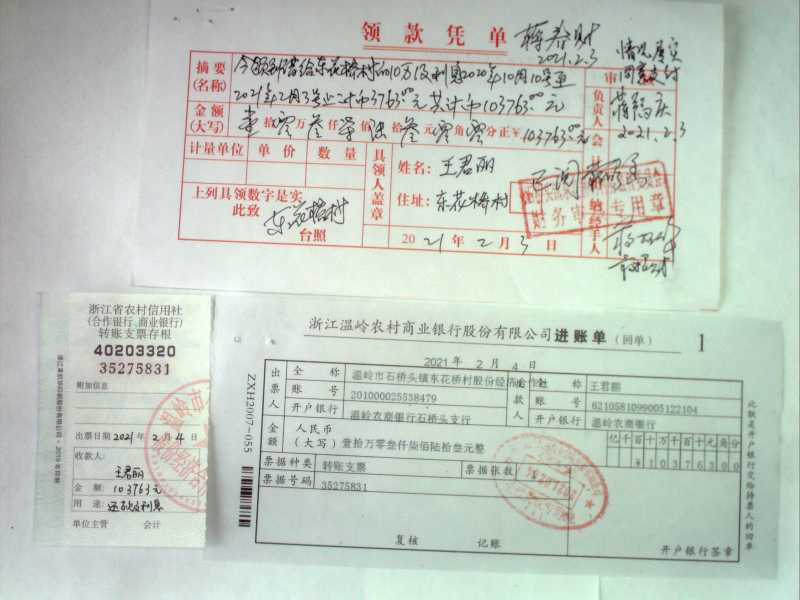 领款凭单
蒋春财
2021.2.3
情况属实
同意支付
2021.2.3
摘要
(名称)
今领到借给东花桥村的10万及利息2020年10月10号至
2021年2月3号止计币3763.00元共计币103763.00元
审
负责人
金额
(大写)
壹拾零万叁仟柒佰陆拾叁元零角零分正¥103763.00元
会
计量单位 单价 数量
具领人盖章
姓名: 王君丽
住址: 东花桥村
上列具领数字是实
此致
东花桥村
台照
2021年2月3日
财务审 专用章
经手人
浙江省农村信用社
(合作银行、商业银行)
转账支票存根
40203320
35275831
附加信息
出票日期 2021年2月4日
收款人:
王君丽
金额: 103763元
用途: 还款及利息
单位主管 会计
浙江温岭农村商业银行股份有限公司 进账单 (回单) 1
2021年2月4日
ZXH2007-055
出票人
全称 温岭市石桥头镇东花桥村股份经济合作社
账号 201000025538479
开户银行 温岭农商银行石桥头支行
全称 王君丽
账号 6210581099005122104
开户银行 温岭农商银行
金额
人民币
(大写) 壹拾万零叁仟柒佰陆拾叁元整
亿千百十万千百十元角分
¥10376300
票据种类 转账支票 票据张数
票据号码 35275831
复核 记账
开户银行签章
此联是开户银行交给持票人的回单